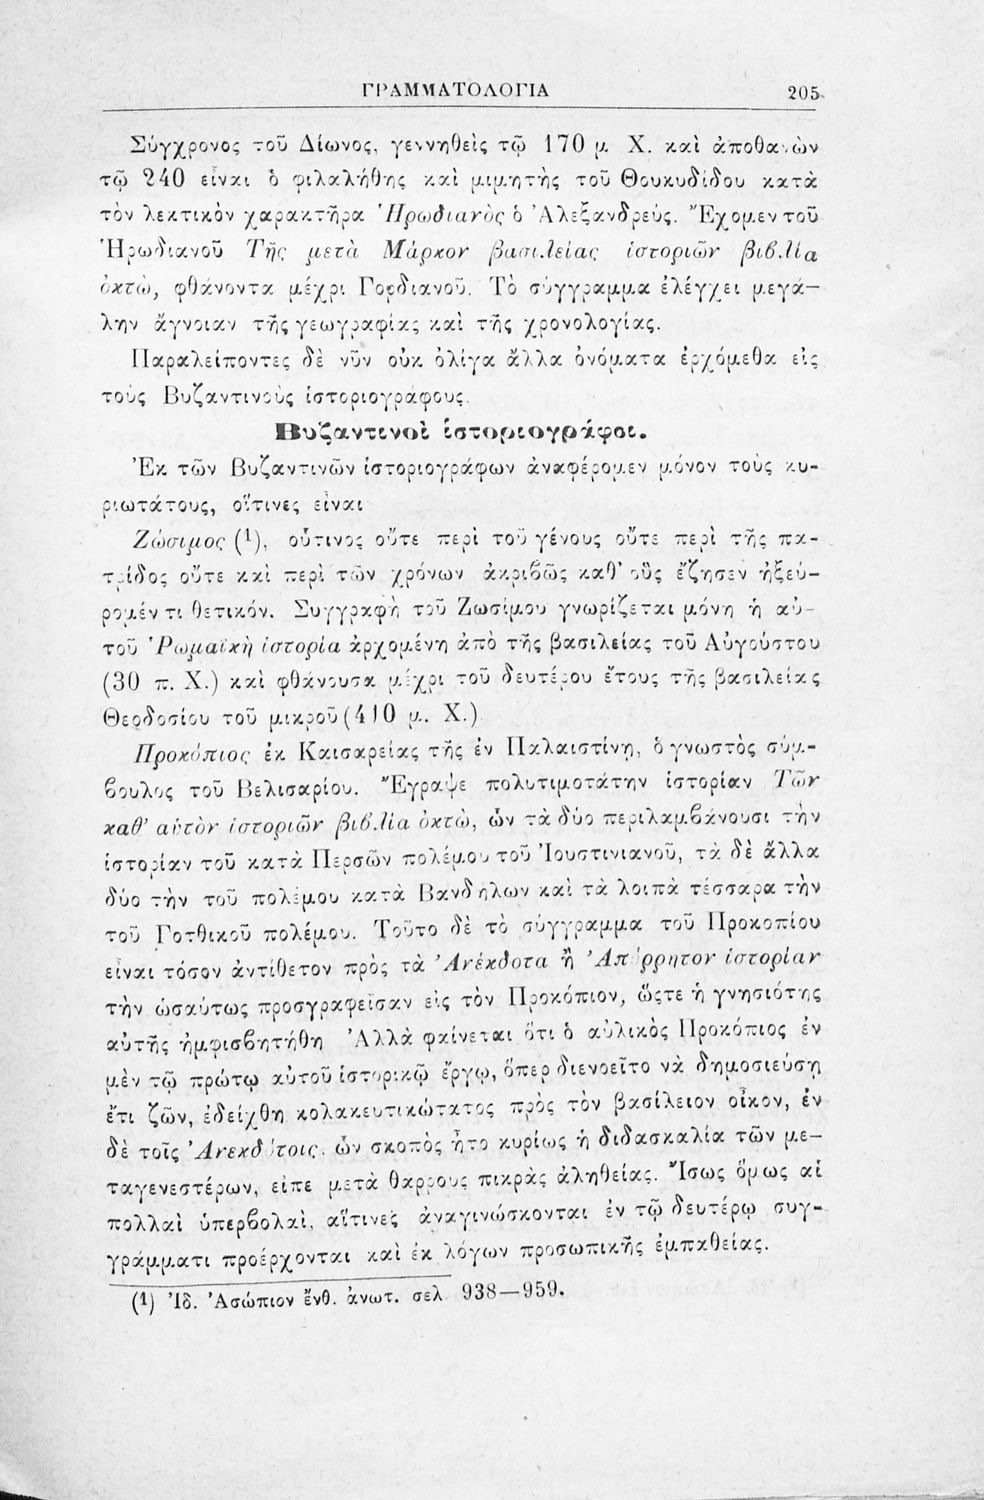 ΓΡΑΜΜΑΤΟΛΟΓΙΑ 205
Σύγχρονος τοῦ Δίωνος, γεννηθεὶς τῷ 170 μ. Χ. καὶ ἀποθανὼν
τῷ 240 εἶναι ὁ φιλαλήθης καὶ μιμητὴς τοῦ Θουκυδίδου κατὰ
τὸν λεκτικὸν χαρακτῆρα Ἡρωδιανὸς ὁ Ἀλεξανδρεύς. Ἔχομεν τοῦ
Ἡρωδιανοῦ Τῆς μετὰ Μάρκον βασιλείας ἱστοριῶν βιβλία
ὀκτὼ, φθάνοντα μέχρι Γορδιανοῦ. Τὸ σύγγραμμα ἐλέγχει μεγά—
λην ἄγνοιαν τῆς γεωγραφίας καὶ τῆς χρονολογίας.
Παραλείποντες δὲ νῦν οὐκ ὀλίγα ἄλλα ὀνόματα ἐρχόμεθα εἰς
τοὺς Βυζαντινοὺς ἱστοριογράφους.
Βυζαντινοὶ ἱστοριογράφοι.
Ἐκ τῶν Βυζαντινῶν ἱστοριογράφων ἀναφέρομεν μόνον τοὺς κυ-
ριωτάτους, οἵτινες εἶναι
Ζώσιμος (1), οὗτινος οὔτε περὶ τοῦ γένους οὔτε περὶ τῆς πα-
τρίδος οὔτε καὶ περὶ τῶν χρόνων ἀκριβῶς καθ' οὓς ἔζησεν ἠξεύ-
ρομέν τι θετικόν. Συγγραφὴ τοῦ Ζωσίμου γνωρίζεται μόνη ἡ αὐ-
τοῦ Ῥωμαϊκὴ ἱστορία ἀρχομένη ἀπὸ τῆς βασιλείας τοῦ Αὐγούστου
(30 π. Χ.) καὶ φθάνουσα μέχρι τοῦ δευτέρου ἔτους τῆς βασιλείας
Θεοδοσίου τοῦ μικροῦ (410 μ. Χ.)
Προκόπιος ἐκ Καισαρείας τῆς ἐν Παλαιστίνῃ, ὁ γνωστὸς σύμ-
βουλος τοῦ Βελισαρίου. Ἔγραψε πολυτιμοτάτην ἱστορίαν Τῶν
καθ' αὑτὸν ἱστοριῶν βιβλία ὀκτὼ, ὧν τὰ δύο περιλαμβάνουσι τὴν
ἱστορίαν τοῦ κατὰ Περσῶν πολέμου τοῦ Ἰουστινιανοῦ, τὰ δὲ ἄλλα
δύο τὴν τοῦ πολέμου κατὰ Βανδήλων καὶ τὰ λοιπὰ τέσσαρα τὴν
τοῦ Γοτθικοῦ πολέμου. Τοῦτο δὲ τὸ σύγγραμμα τοῦ Προκοπίου
εἶναι τόσον ἀντίθετον πρὸς τὰ Ἀνέκδοτα ἢ Ἀπόρρητον ἱστορίαν
τὴν ὡσαύτως προσγραφεῖσαν εἰς τὸν Προκόπιον, ὥςτε ἡ γνησιότης
αὐτῆς ἠμφισβητήθη Ἀλλὰ φαίνεται ὅτι ὁ αὐλικὸς Προκόπιος ἐν
μὲν τῷ πρώτῳ αὐτοῦ ἱστορικῷ ἔργῳ, ὅπερ διενοεῖτο νὰ δημοσιεύσῃ
ἔτι ζῶν, ἐδείχθη κολακευτικώτατος πρὸς τὸν βασίλειον οἶκον, ἐν
δὲ τοῖς Ἀνεκδότοις, ὧν σκοπὸς ἦτο κυρίως ἡ διδασκαλία τῶν με—
ταγενεστέρων, εἶπε μετὰ θάρρους πικρὰς ἀληθείας. Ἴσως ὅμως αἱ
πολλαὶ ὑπερβολαὶ, αἵτινες ἀναγινώσκονται ἐν τῷ δευτέρῳ συγ-
γράμματι προέρχονται καὶ ἐκ λόγων προσωπικῆς ἐμπαθείας.
(1) Ἰδ. Ἀσώπιον ἔνθ. ἀνωτ. σελ 938—959.